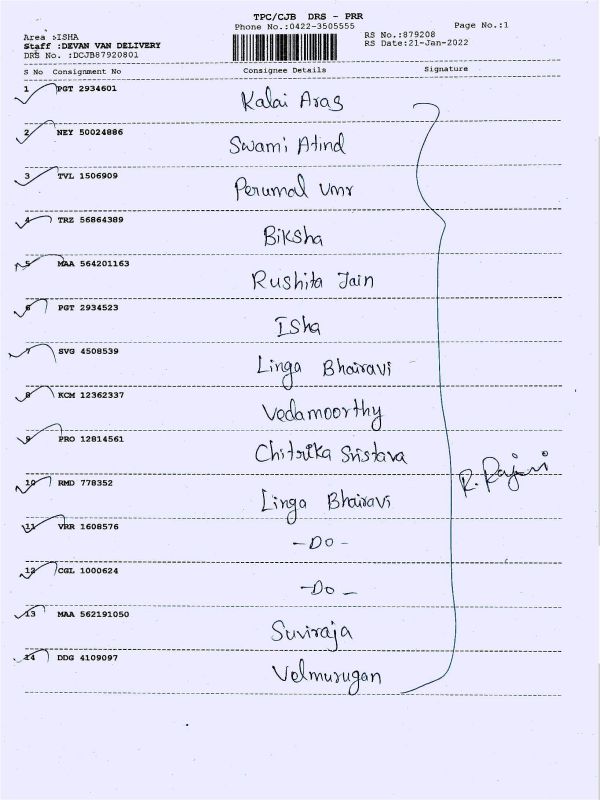 TPC/CJB DRS - PRR
Phone No.:0422-3505555
Page No.:1
Area :ISHA
RS No.:879208
Staff :DEVAN VAN DELIVERY
RS Date:21-Jan-2022
DRS No. :DCJB87920801
S No Consignment No Consignee Details Signature
1 PGT 2934601 Kalai Aras
2 NEY 50024886 Swami Atind
3 TVL 1506909 Perumal Vmr
4 TRZ 56864389 Biksha
5 MAA 564201163 Rushita Jain
6 PGT 2934523 Isha
7 SVG 4508539 Linga Bhairavi
8 KCM 12362337 Vedamoorthy
9 PRO 12814561 Chitrika Sristava
R. Rajini
10 RMD 778352 Linga Bhairavi
11 VRR 1608576 -Do-
12 CGL 1000624 -Do-
13 MAA 562191050 Suviraja
14 DDG 4109097 Velmurugan